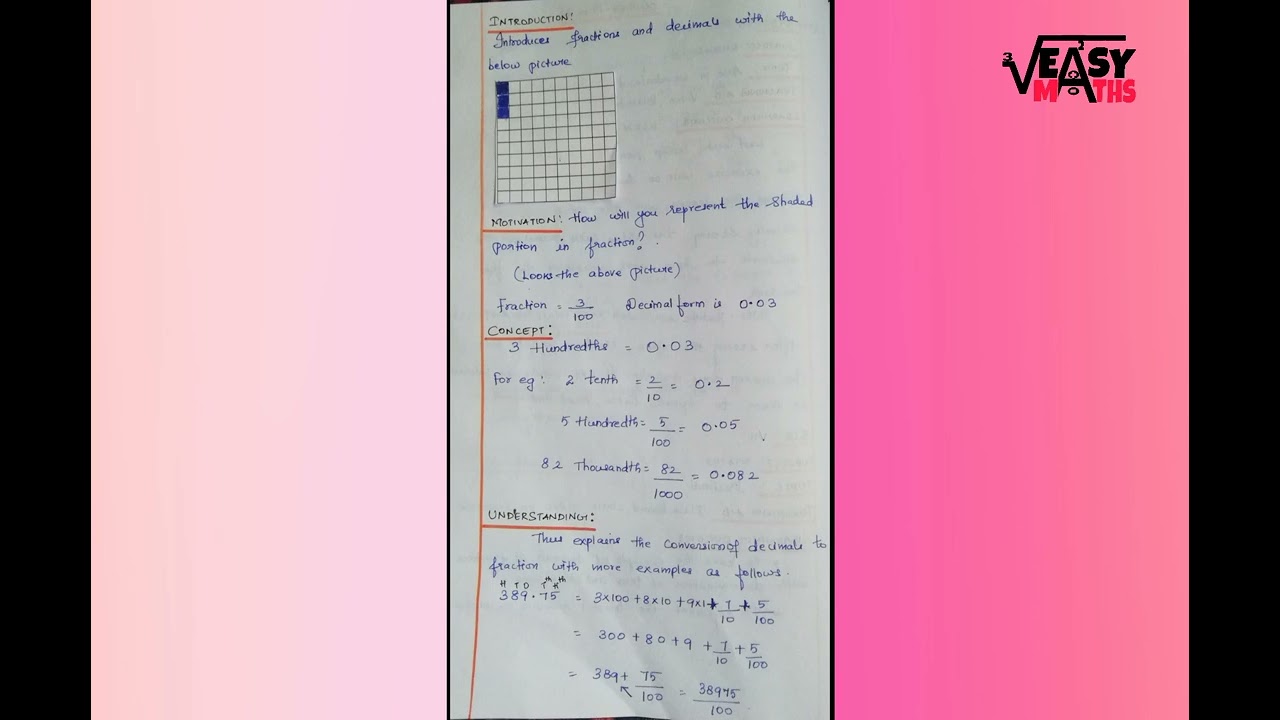 INTRODUCTION:
Introduces fractions and decimals with the
below picture
MOTIVATION: How will you represent the shaded
portion in fraction?
(Looks the above picture)
Fraction = 3/100 Decimal form is 0.03
CONCEPT:
3 Hundredths = 0.03
For eg: 2 tenth = 2/10 = 0.2
5 Hundredth = 5/100 = 0.05
82 Thousandth = 82/1000 = 0.082
UNDERSTANDING:
Thus explains the conversion of decimals to
fraction with more examples as follows.
H T O Tth Hth
389.75 = 3×100+8×10+9×1+7/10+5/100
= 300+80+9+7/10+5/100
= 389+75/100 = 38975/100
3√EASY2
MATHS